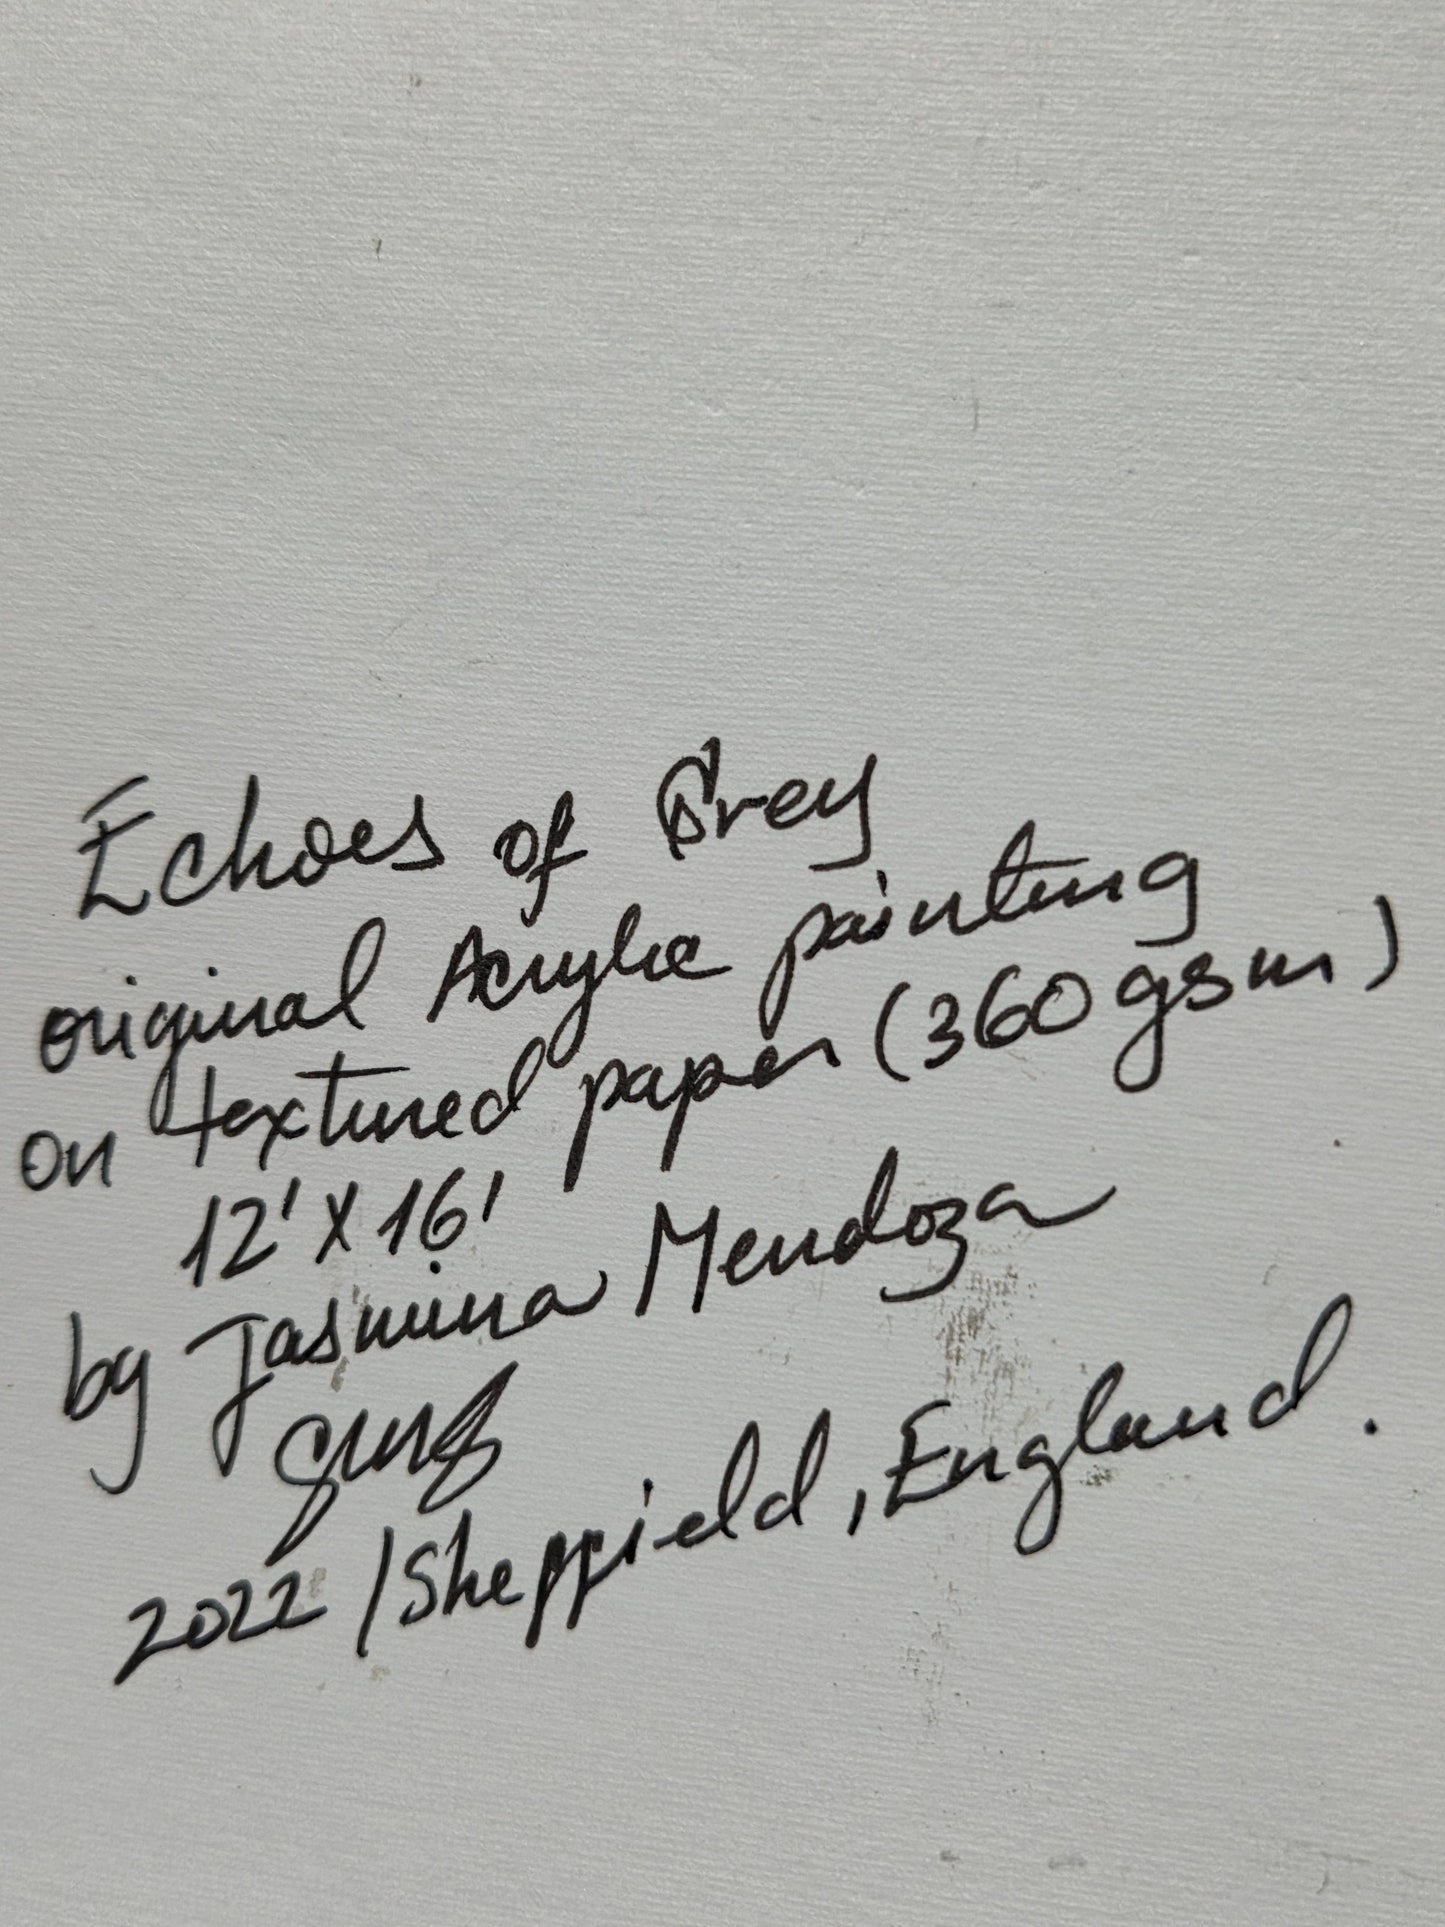 Echoes of Grey
original Acrylic painting
on textured paper (360 gsm)
12' X 16'
by Jasmina Mendoza
2022 / Sheffield, England.